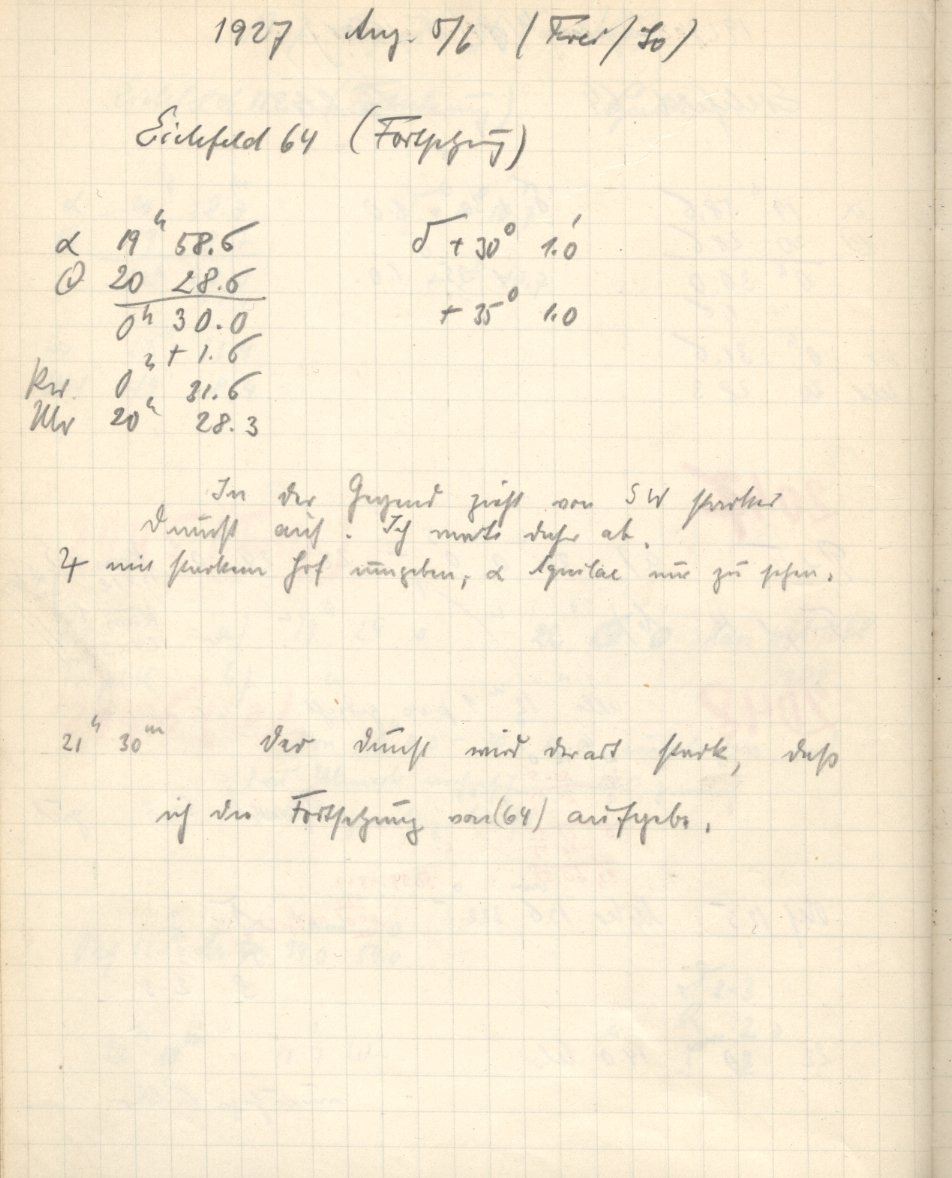 1927 Aug. 5/6 (Frei/So)
Eichfeld 64 (Fortsetzung)
α 19h 58.6 δ + 30° 1.0'
Θ 20 28.6
0h 30.0 + 35° 1.0
+ 1.6
0h 31.6
Uhr 20h 28.3
In der Gegend zieht von SW starker
Dunst auf. Ich warte daher ab.
♃ mit starkem Hof umgeben, α Aquilae nur zu sehen.
21h 30m Der Dunst wird derart stark, daß
ich die Fortsetzung von (64) aufgebe.